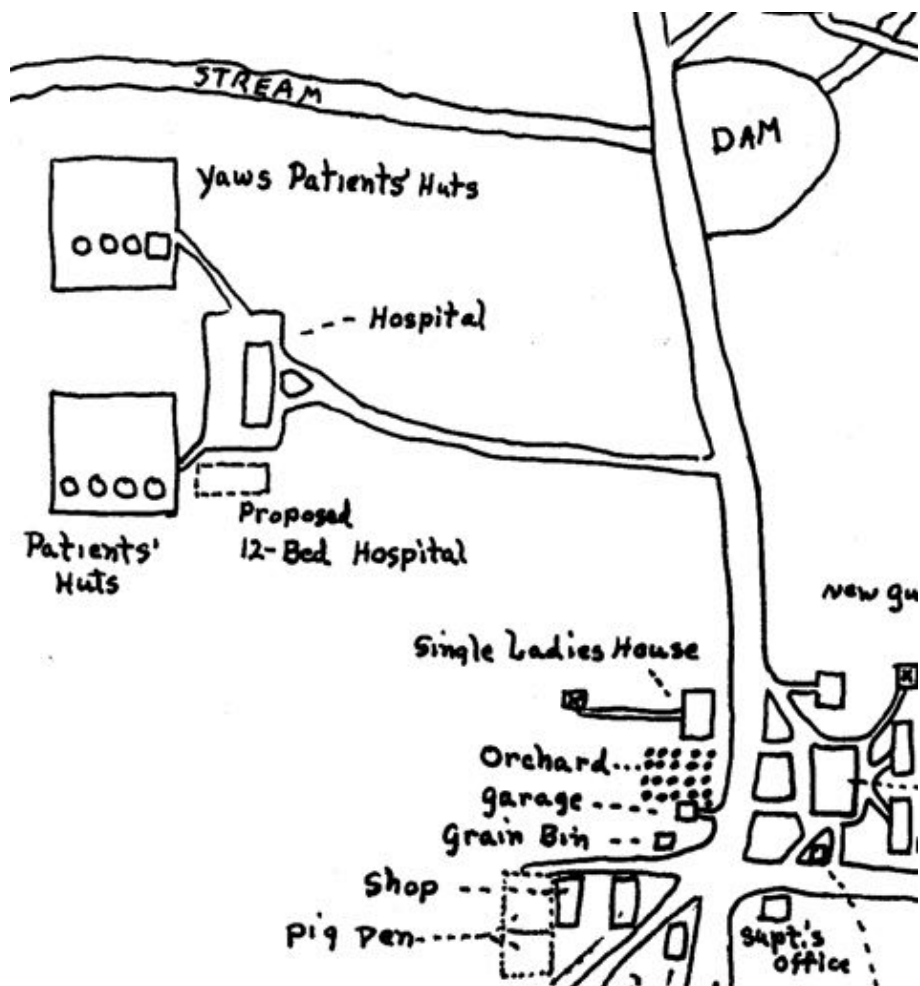 STREAM
DAM
Yaws Patients' Huts
Hospital
Proposed
12-Bed Hospital
Patients'
Huts
New gu
Single Ladies House
Orchard
garage
Grain Bin
Shop
Pig Pen
Supt.'s
Office